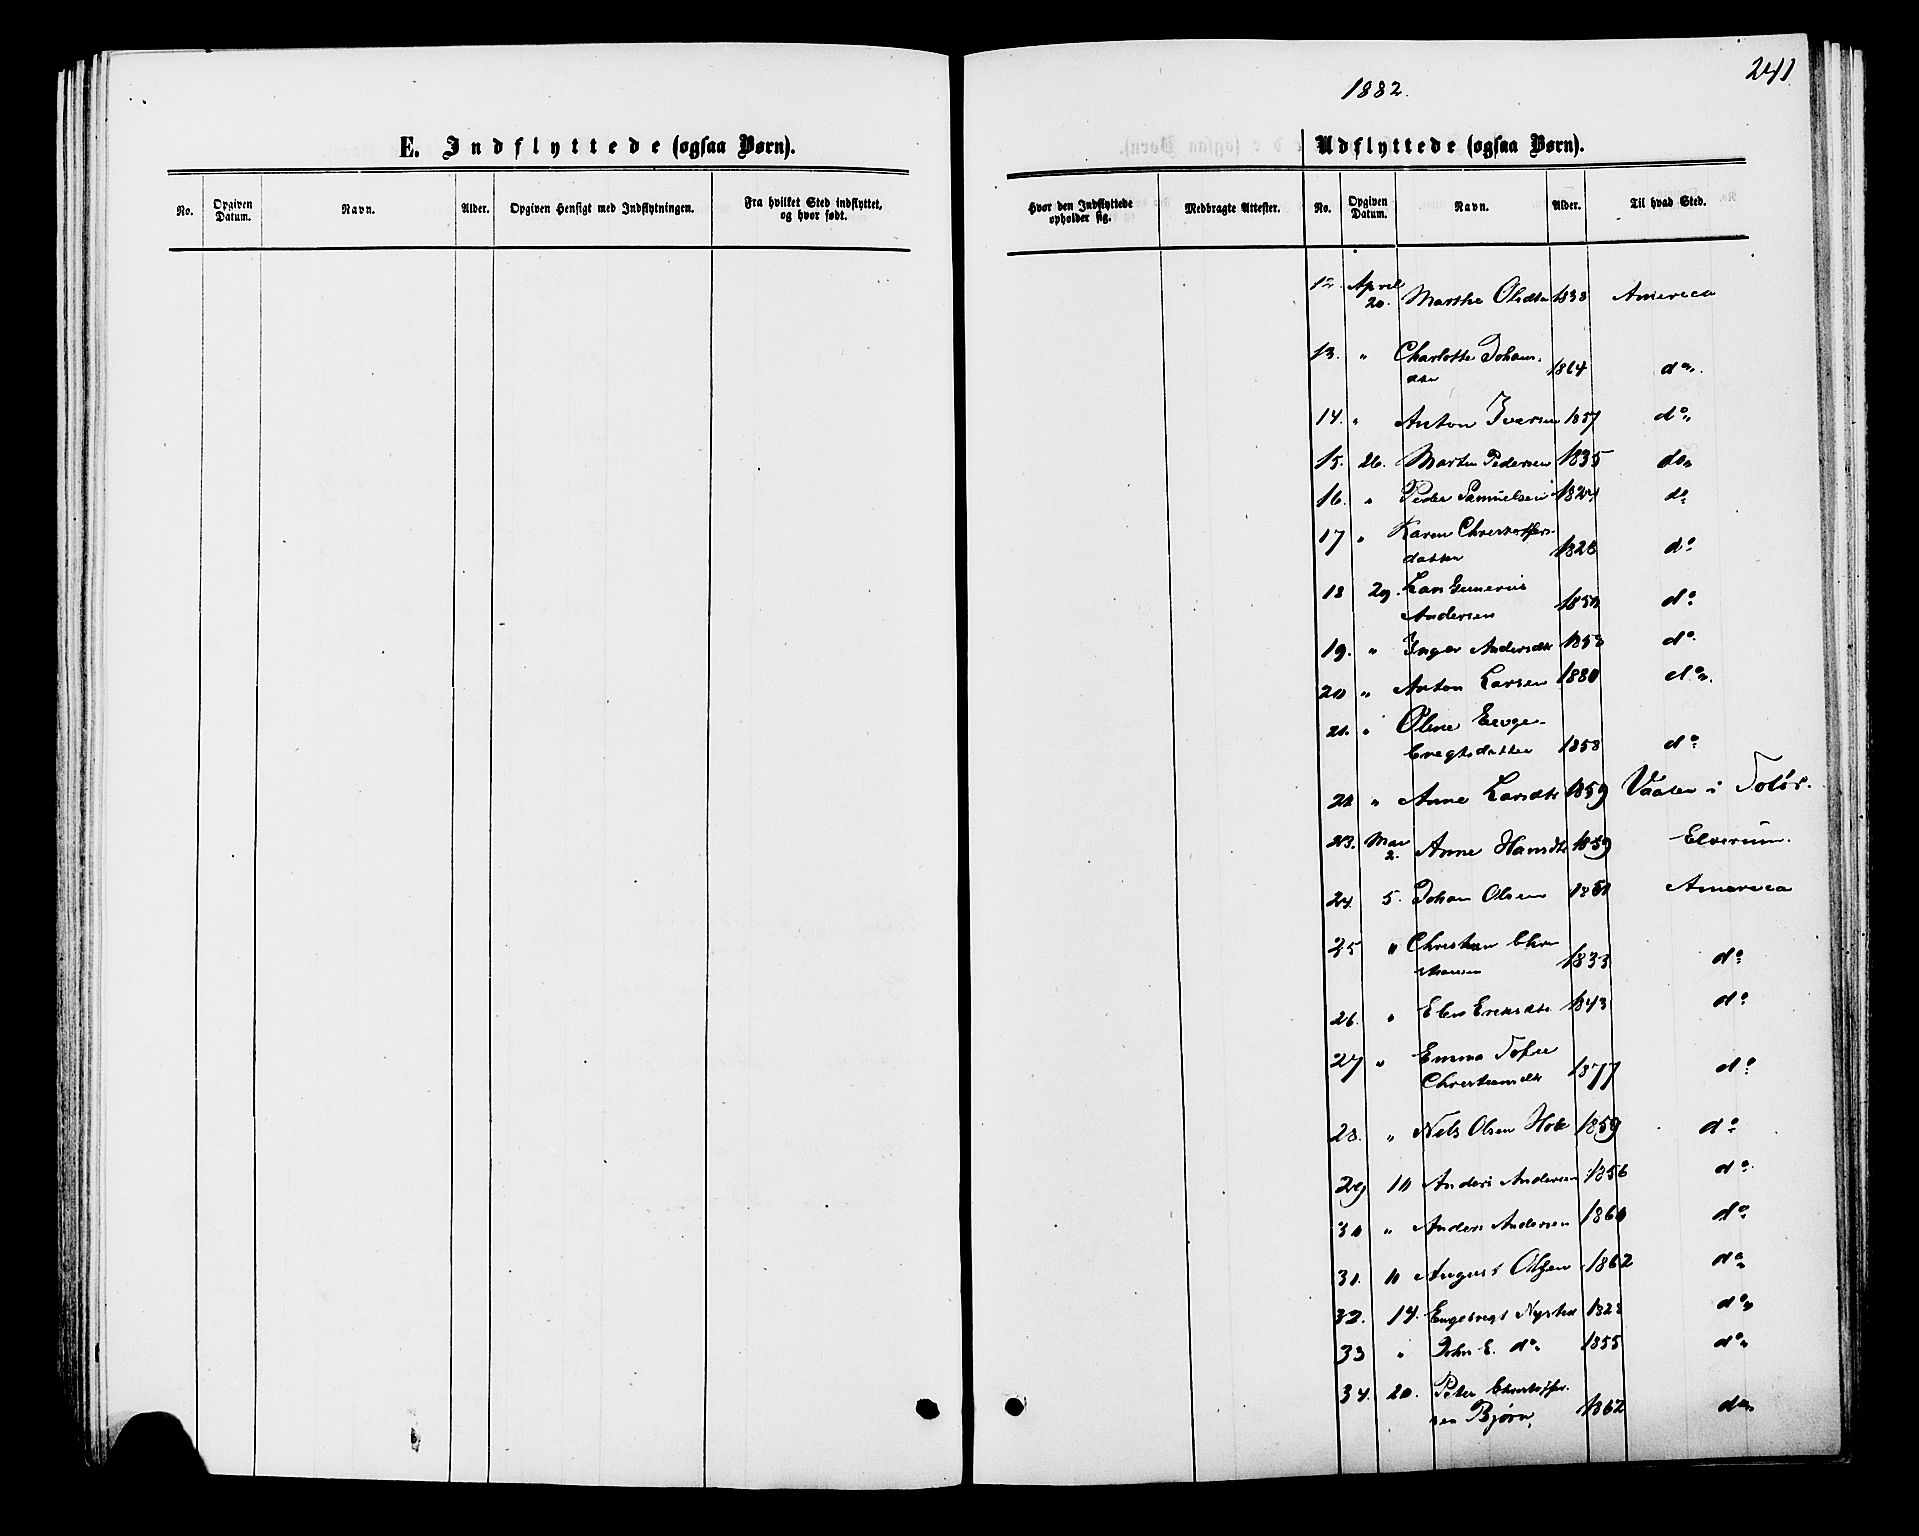 241
1882.
E. Indflyttede (ogsaa Børn).
Udflyttede (ogsaa Børn).
No. Opgiven Datum. Navn. Alder. Opgiven Hensigt med Indflytningen. Fra hvilket Sted indflyttet, og hvor født.
Hvor den Indflyttede opholder sig. Medbragte Attester. No. Opgiven Datum. Navn. Alder. Til hvad Sted.
12. April 20. Marthe Olsdtr 1838 America
13. " Charlotte Johans-
dtr 1864 do
14. " Anton Iversen 1857 do
15. 26. Marten Pedersen 1835 do
16. " Peder Samuelsen 1824 do
17 " Karen Christoffers-
datter 1828 do
18 29. Lars Gunerius
Andersen do
19. " Inger Andersdtr 1853 do
20 " Anton Larsen 1880 do
21. " Oline Enge-
bregtsdatter 1858 do
22 " Anne Larsdtr 1859 Vaaler i Solør.
23. Mai 2. Anne Hansdtr 1859 Elverum.
24. 5. Johan Olsen America
25 " Christian Chri
stiansen 1833 do
26. " Eli Eriksdtr 1843 do
27 " Emma Sofie
Christiansdtr 1877 do
28. " Nels Olsen 1859 do
29 10 Anders Andersen 1856 do
30 " Anders Andersen 1860 do
31. 10 August Olsen 1862 do
32. 14. Engebregt Nysted 1823 do
33 " John E. do 1855 do
34. 20. Peter Christoffer-
sen Bjørn, 1862 do